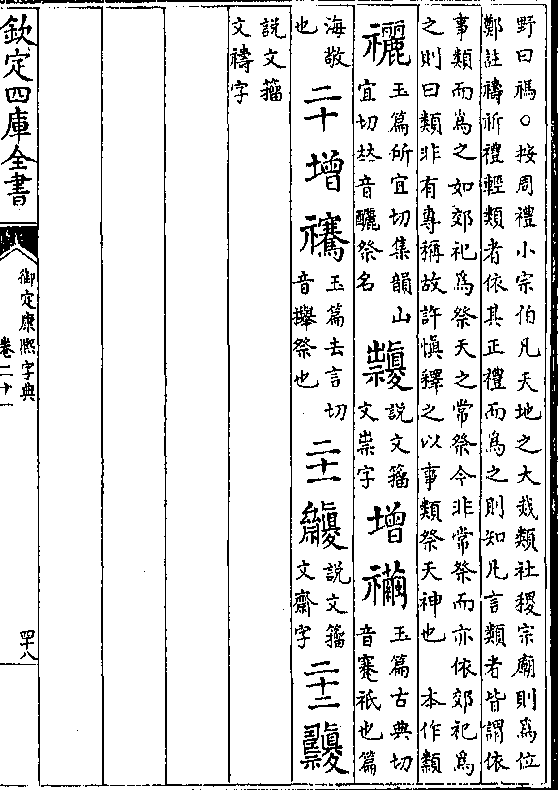 野曰禡○按周禮小宗伯凡天地之大烖類社稷宗廟則爲位
鄭註禱祈禮輕類者依其正禮而爲之則知凡言類者皆謂依
事類而爲之如郊祀爲祭天之常祭今非常祭而亦依郊祀爲
之則曰類非有專稱故許愼釋之以事類祭天神也 本作類
玉篇所宜切集韻山
宜切𠀤音釃祭名
說文籀
文祟字
增
玉篇古典切
音蹇祗也篇
海敬
也
二十
增
玉篇去言切
音攑祭也
二十一
說文籀
文齋字
二十二
說文籀
文禱字
欽定四庫全書
御定康熙字典
卷二十一
四十八